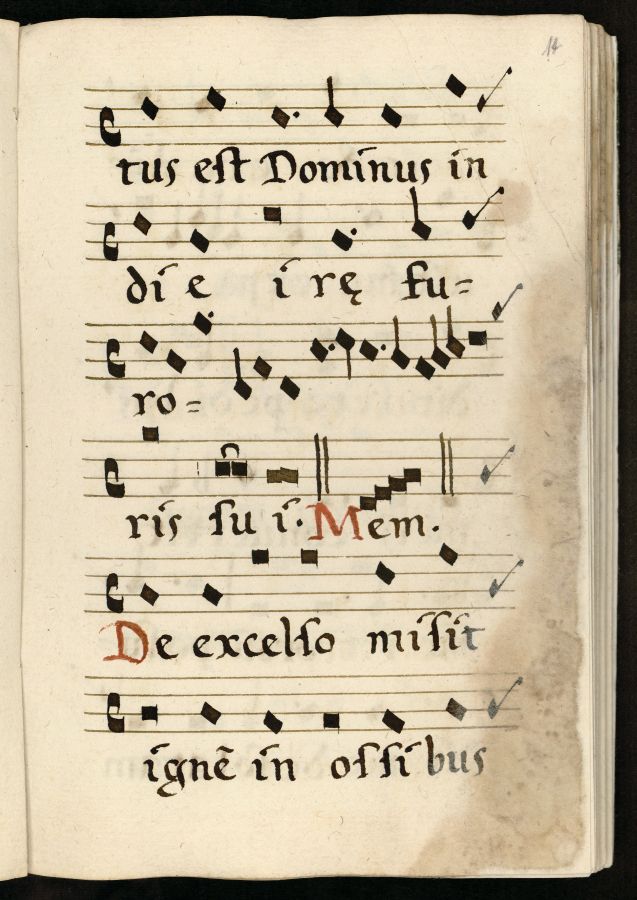 14
tus est Dominus in
di e i rę fu=
ro=
ris su i. Mem.
De excelso misit
ignē in ossibus